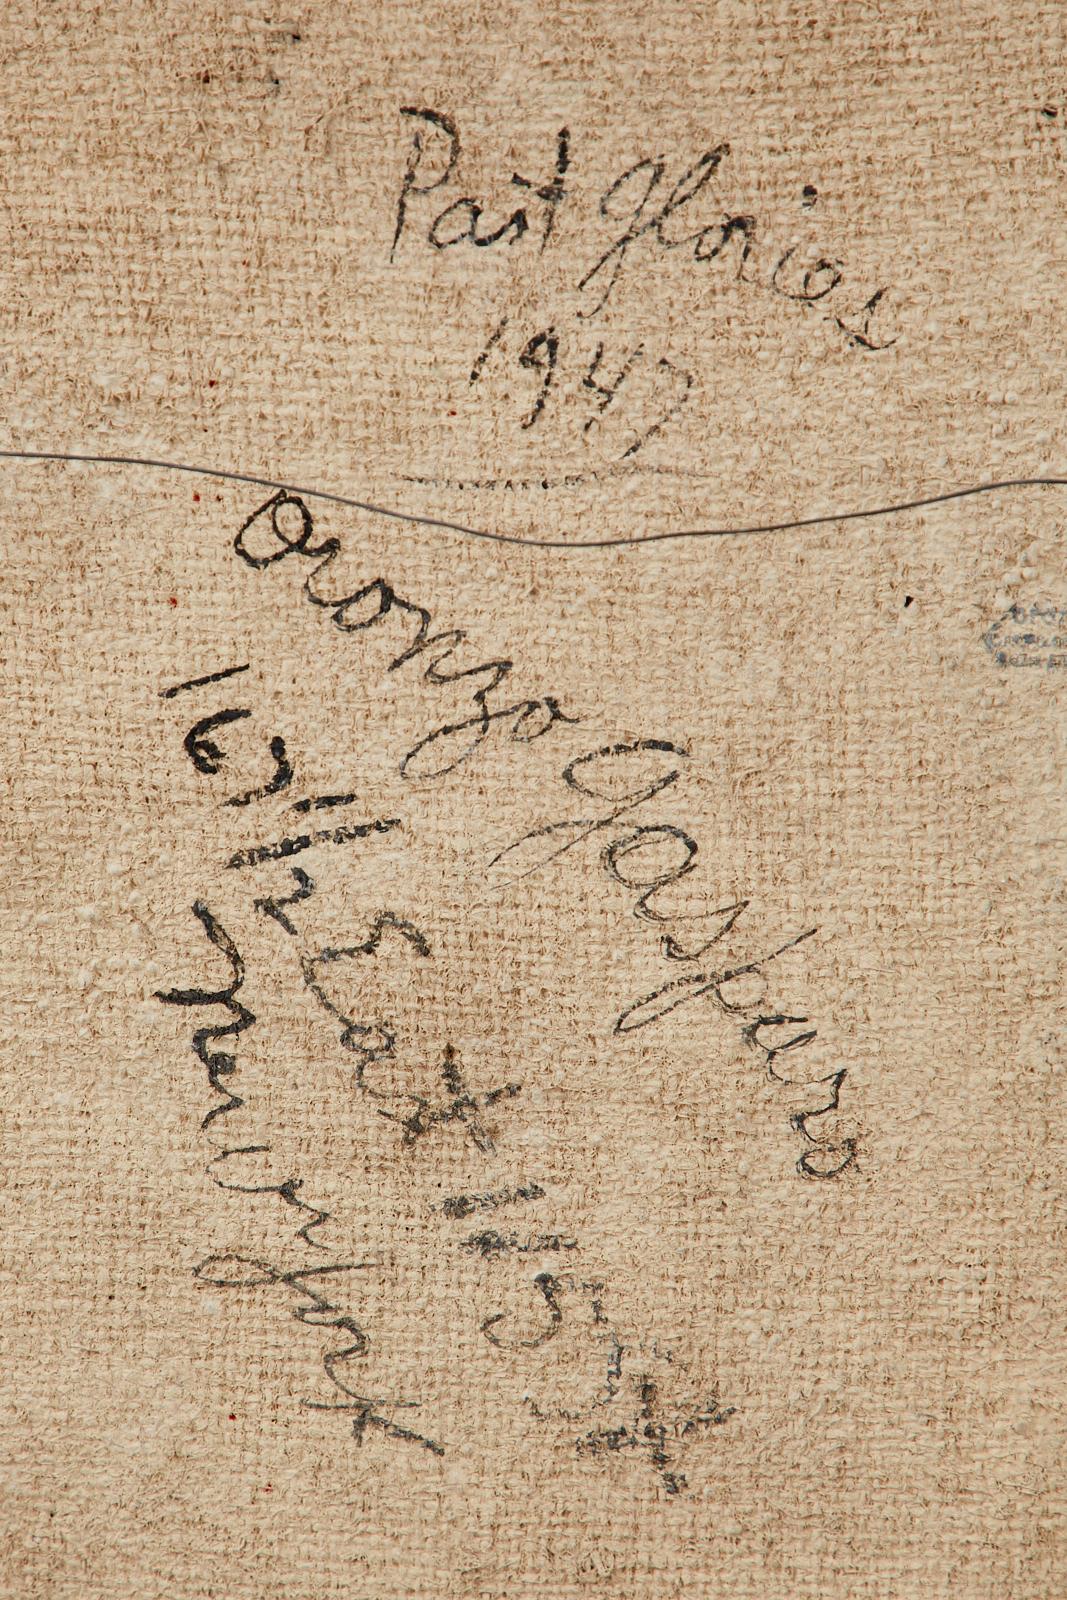 Past Glories
1947
Oronzo Gasparo
East 115 St
New York